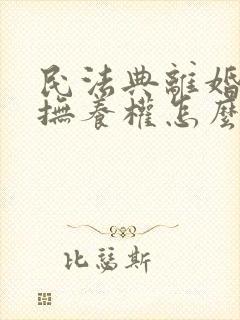 民法典離婚
撫養權怎麼
比瑟斯